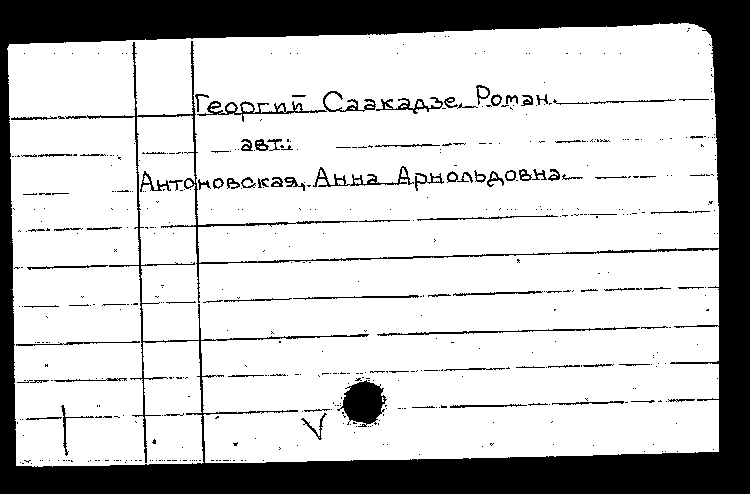 Георгий Саакадзе. Роман.
авт.:
Антоновская, Анна Арнольдовна.